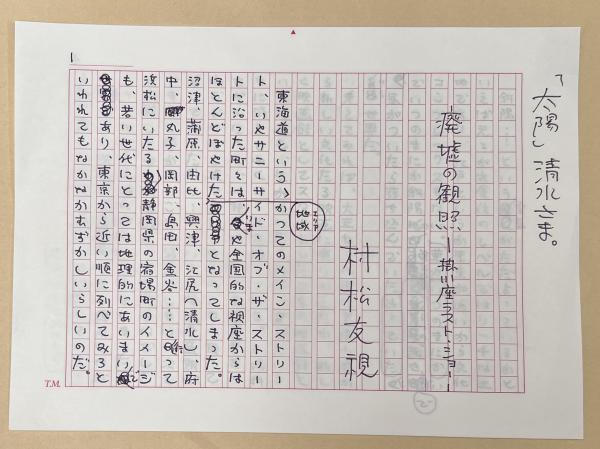 「太陽」清水さま。
1
廃墟の観照ー掛川座ラスト・ショーー
村松友視
東海道という、かつてのメイン・ストリー
ト、いやサニーサイド・オブ・ザ・ストリー
トに沿った町々は、いまや全国的な視座からは
ほとんどぼやけた地域エリアとなってしまった。
沼津、蒲原、由比、興津、江尻（清水）、府
中、丸子、岡部、島田、金谷……と行って
浜松にいたる静岡県の宿場町のイメージ
も、若い世代にとっては地理的にあいまいで
あり、東京から近い順に列べてみろと
いわれてもなかなかむずかしいらしいのだ。
T.M.